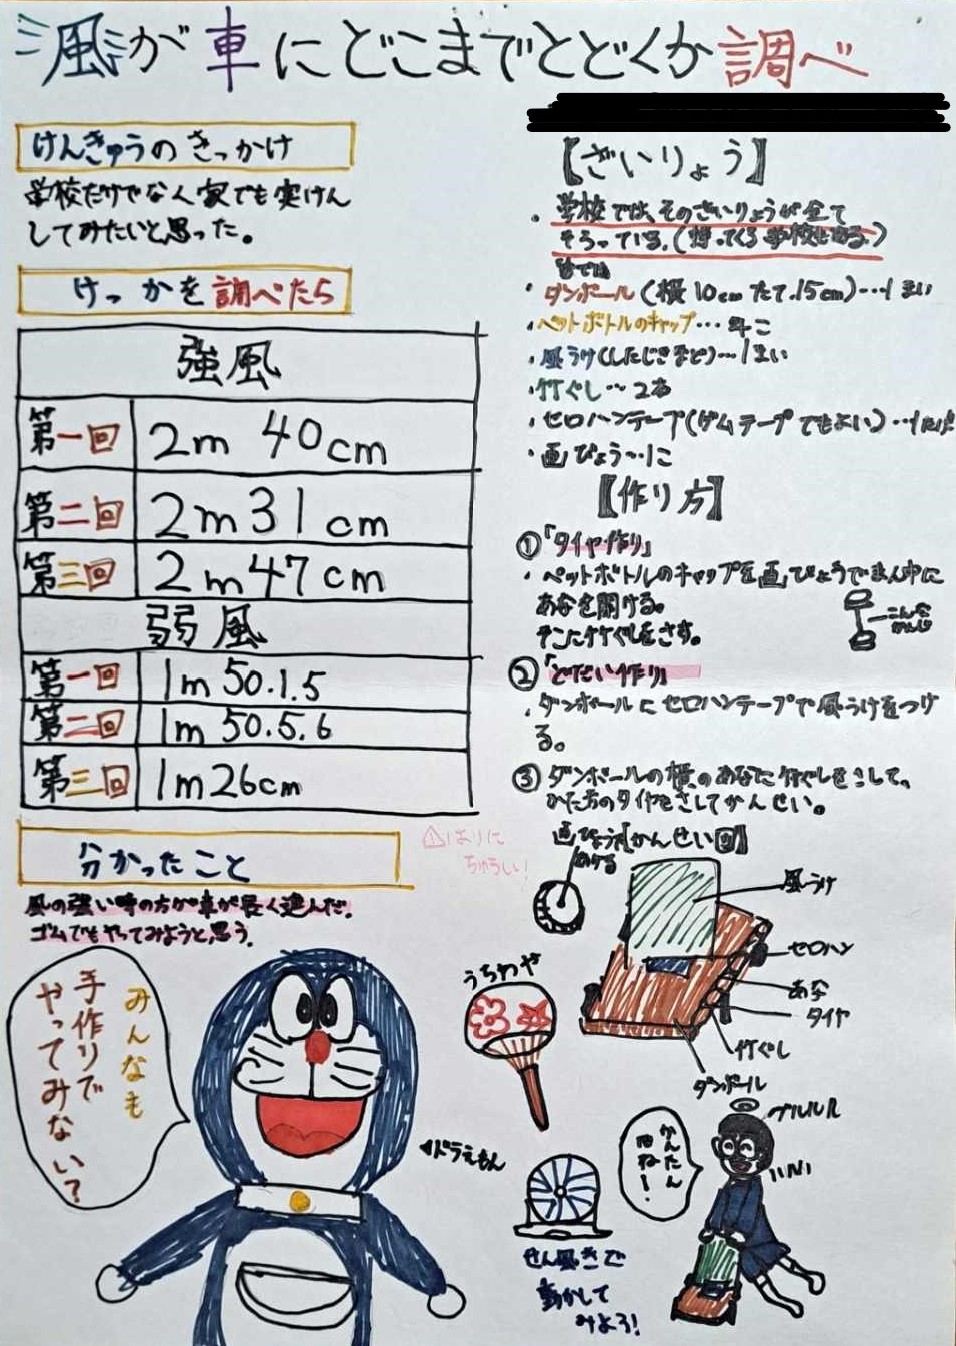 風が車にどこまでとどくか調べ
けんきゅうのきっかけ
学校だけでなく家でも実けん
してみたいと思った。
けっかを調べたら
強風
第一回 2m 40cm
第二回 2m31cm
第三回 2m47cm
弱風
第一回 1m 50.1.5
第二回 1m 50.5.6
第三回 1m26cm
分かったこと
風の強い時の方が車が長く進んだ。
ゴムでもやってみようと思う。
みんなも
手作りで
やってみない?
【ざいりょう】
・学校では、そのざいりょうが全て
そろっている。(持ってくる学校もある。)
・ダンボール(横10cmたて.15cm)…1まい
・ペットボトルのキャップ…4こ
・風うけ(したじきなど)…1まい
・竹ぐし…2本
・セロハンテープ(ガムテープでもよい)…1
・画びょう…1こ
【作り方】
①「タイヤ作り」
・ペットボトルのキャップを画びょうでまん中に
あなを開ける。
そこに竹ぐしをさす。
こんな
かんじ
②「どだい作り」
・ダンボールにセロハンテープで風うけをつけ
る。
③ダンボールの横のあなに竹ぐしをさして、
かた方のタイヤをさしてかんせい。
⚠はりに
ちゅうい!
画びょう
あける
【かんせい図】
風うけ
セロハン
あな
タイヤ
竹ぐし
ダンボール
うちわや
◀ドラえもん
せん風きで
動かして
みよう!
かんたん
だね!
ブルルル